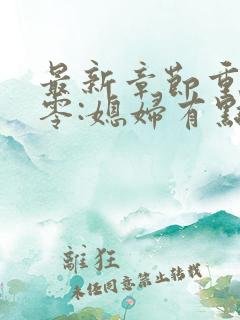 最新章節重
零:媳婦有點
離狂
未经同意禁止转载